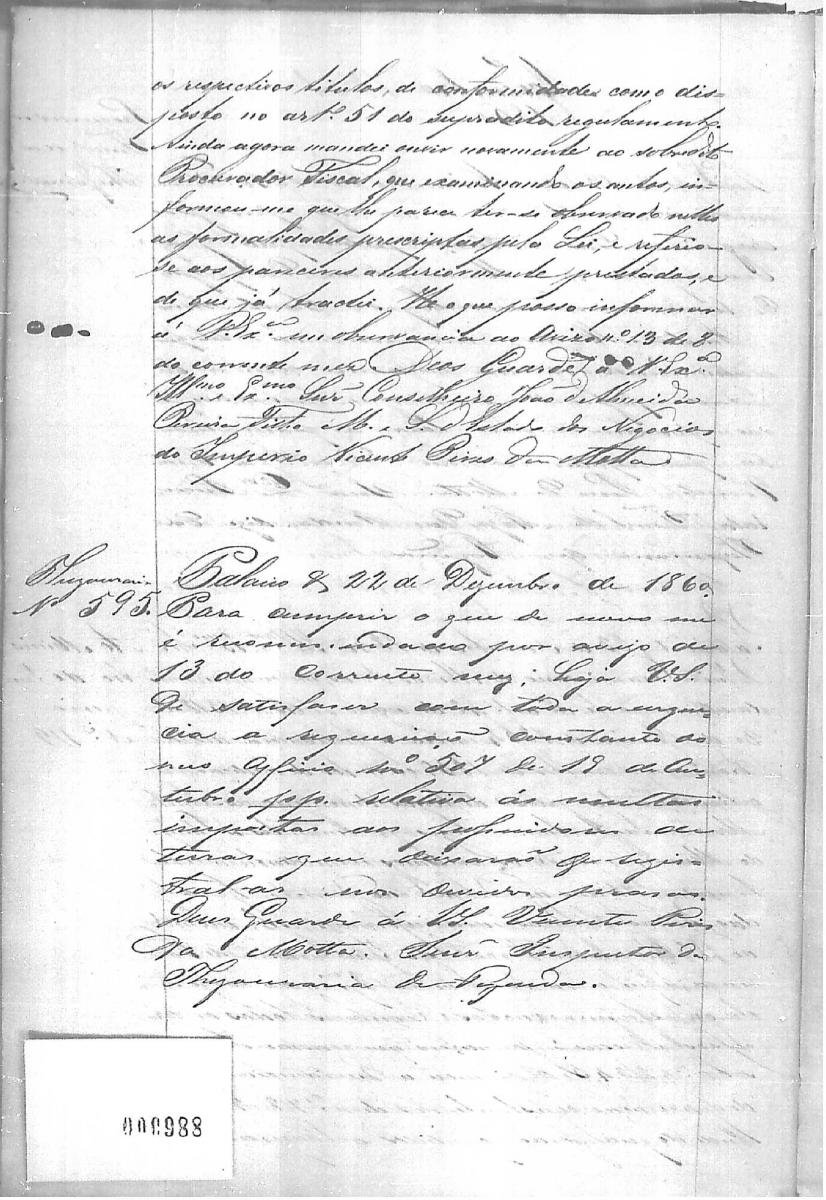 os respectivos titulos, de conformidade como dis-
posto no artº 51 do supradito regulamento.
Ainda agora mandei ouvir novamente ao sobredito
Procurador Fiscal, que examinando os autos, in-
formou-me que lhe parece ter-se observado nelles
as formalidades prescriptas pela Lei, e referio-
se aos pareceres anteriormente prestados, e
de que já tractei. He o que posso informar
á V. Exª em observancia ao Aviso nº 13 de 3
do corrente mez Deos Guarde á V. Exª
Illmo e Exmo Snr Conselheiro João d'Almeida
Pereira Filho M. e S. d'Estado dos Negocios
do Imperio Vicente Pires da Motta
Thezouraria
Nº 595.
Palacio 22 de Dezembro de 1860.
Para cumprir o que de novo me
é recommendado por avizo de
13 do corrente mez, haja V.S.
de satisfaser com toda a urgen-
cia a requisição constante do
meu officio nº 507 de 19 de Ou-
tubro pp. relativa ás multas
impostas aos possuidores de
terras que deixarão de regis-
tral-as nos devidos prasos.
Deus Guarde á V.S. Vicente Pires
da Motta. Snr Inspector da
Thezouraria de Fazenda.
000988